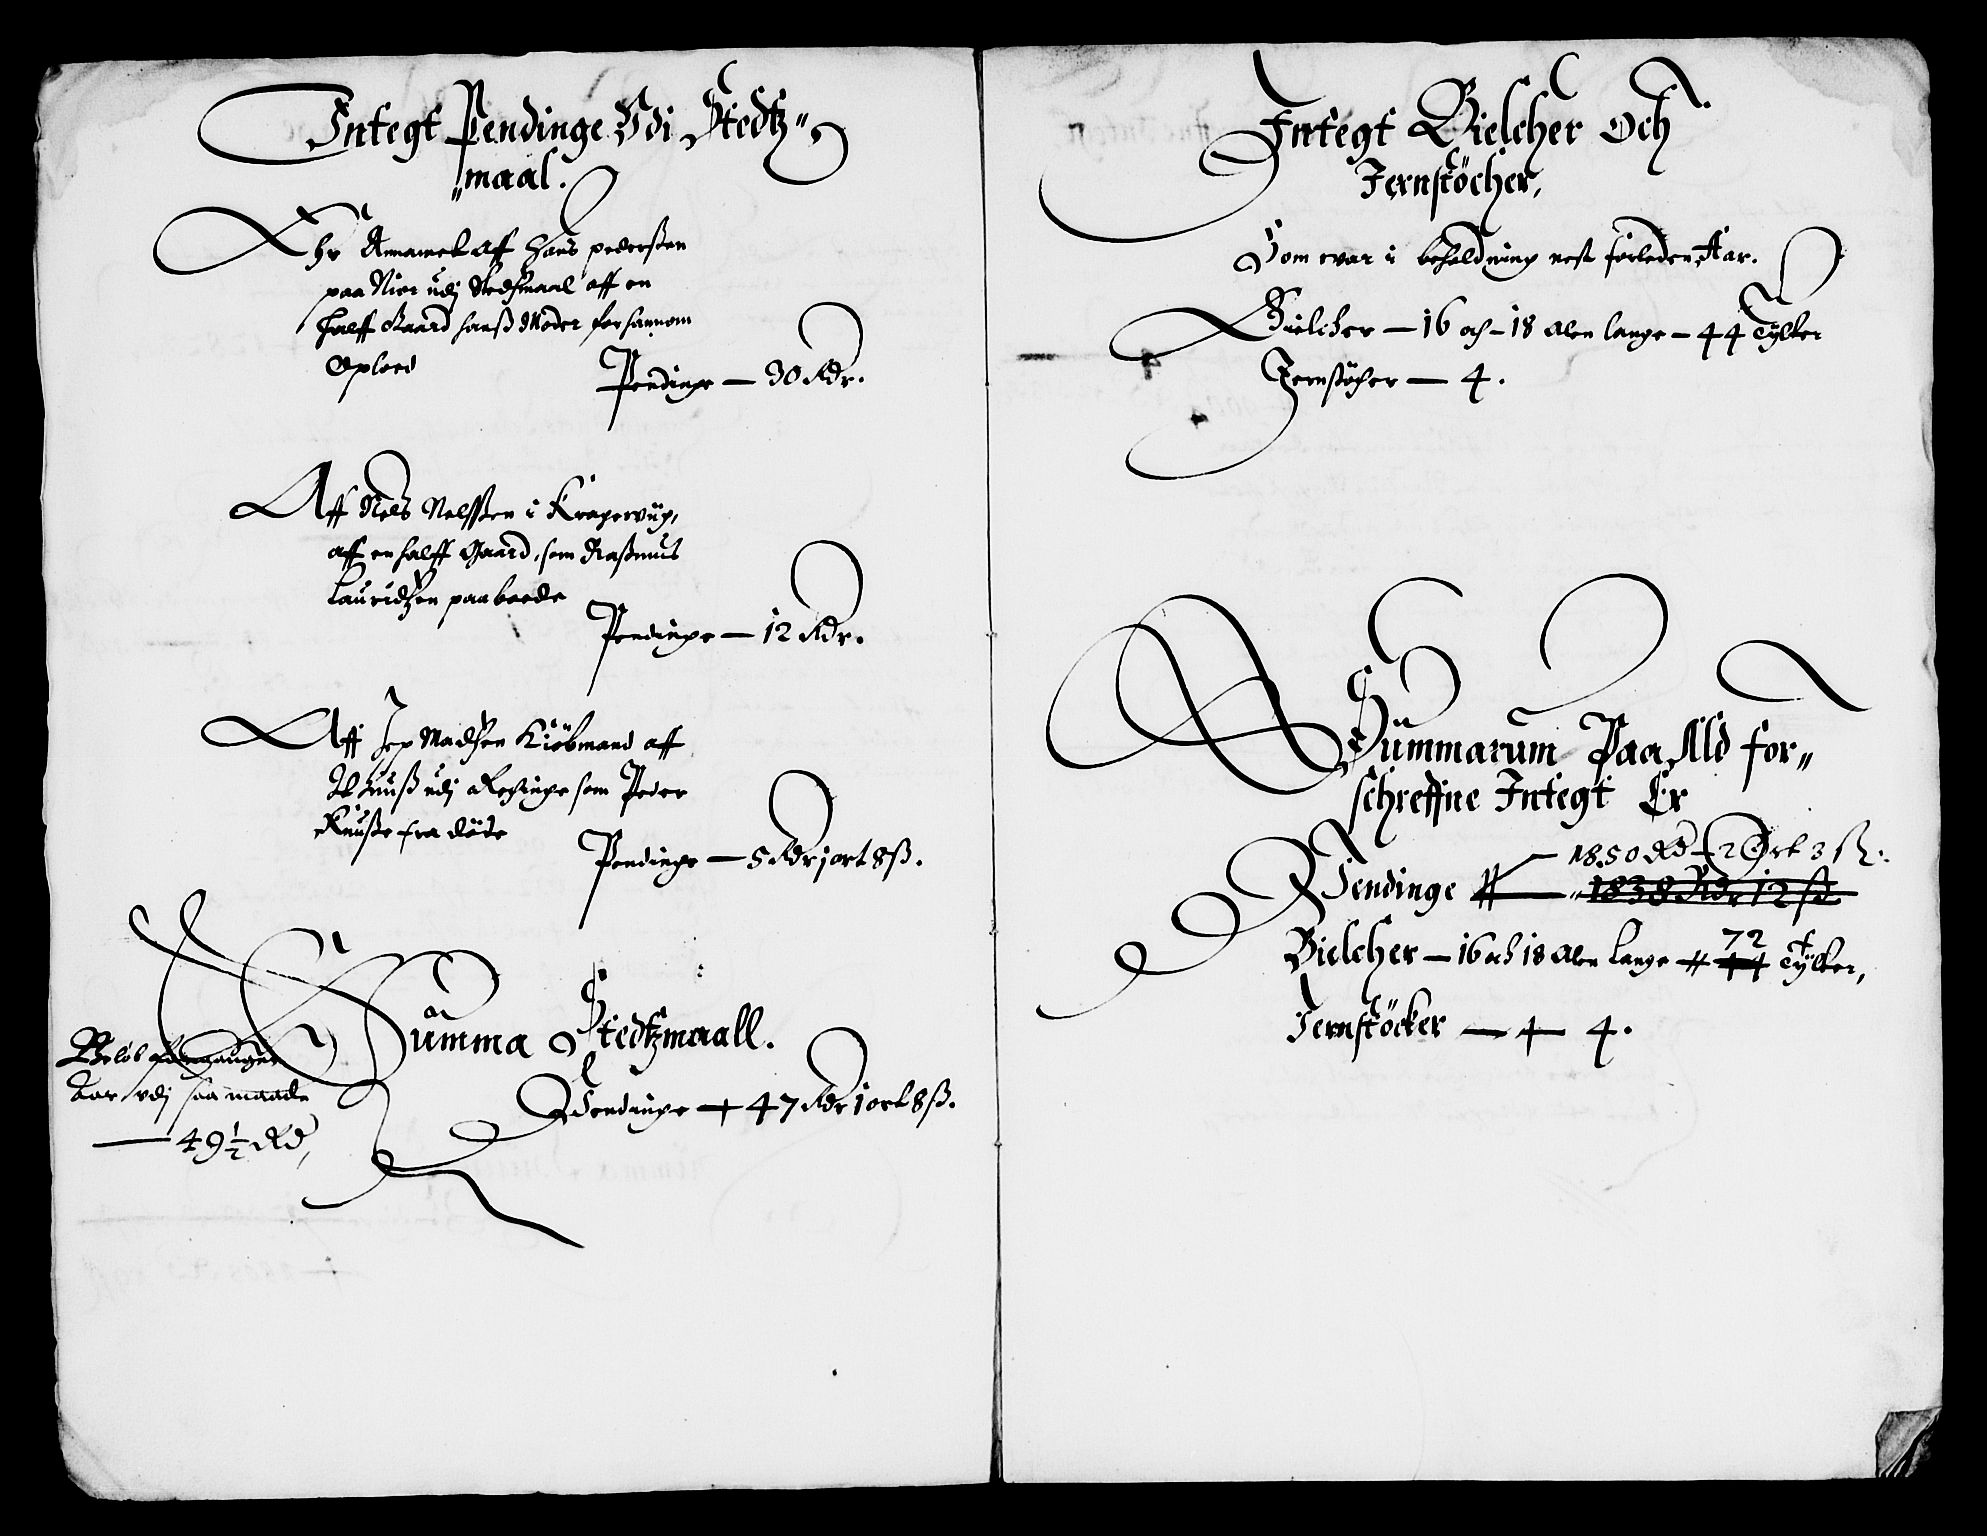 Integt Pendinge Vdi Stedtz"
"maal.
Ehr Annamet Aff Hans pederßen
paa Nior udj Stedsmaal aff en
halff Gaard hanß Moder for hannom
Oploed
Pendinge — 30 Rdr.
Aff Niels Nelsßen i Krapervüp,
aff en halff Gaard, som Raßmus
Lauridtzen paaboede
Pendinge — 12 Rdr.
Aff Jep Madtzen Kiöbmand aff
It huuß udj som Peder
Knuße fra döde
Pendinge — 5 Rdr 1 ort 8 ß.
Sümma Stedtzmaall.
Pendinge — 47 Rdr 1 ort 8 ß.
Beløb
Aar vdj saa maade
— 49½ Rd,
Integt Bielcher Och
Jernstöcher,
Som war i beholdning nest forleden Aar.
Bielcher — 16 och — 18 Alen lange — 44 Tylter
Jernstöcher — 4.
Summarum Paa Ald for"
schreffne Integt Er
— 1850 Rd — 2 Ort 3 ß.
Pendinge — 1838 Rdr 12 ß
Bielcher — 16 och 18 Alen Lange — 72
44 Tylter,
Jernstöcker — 4.